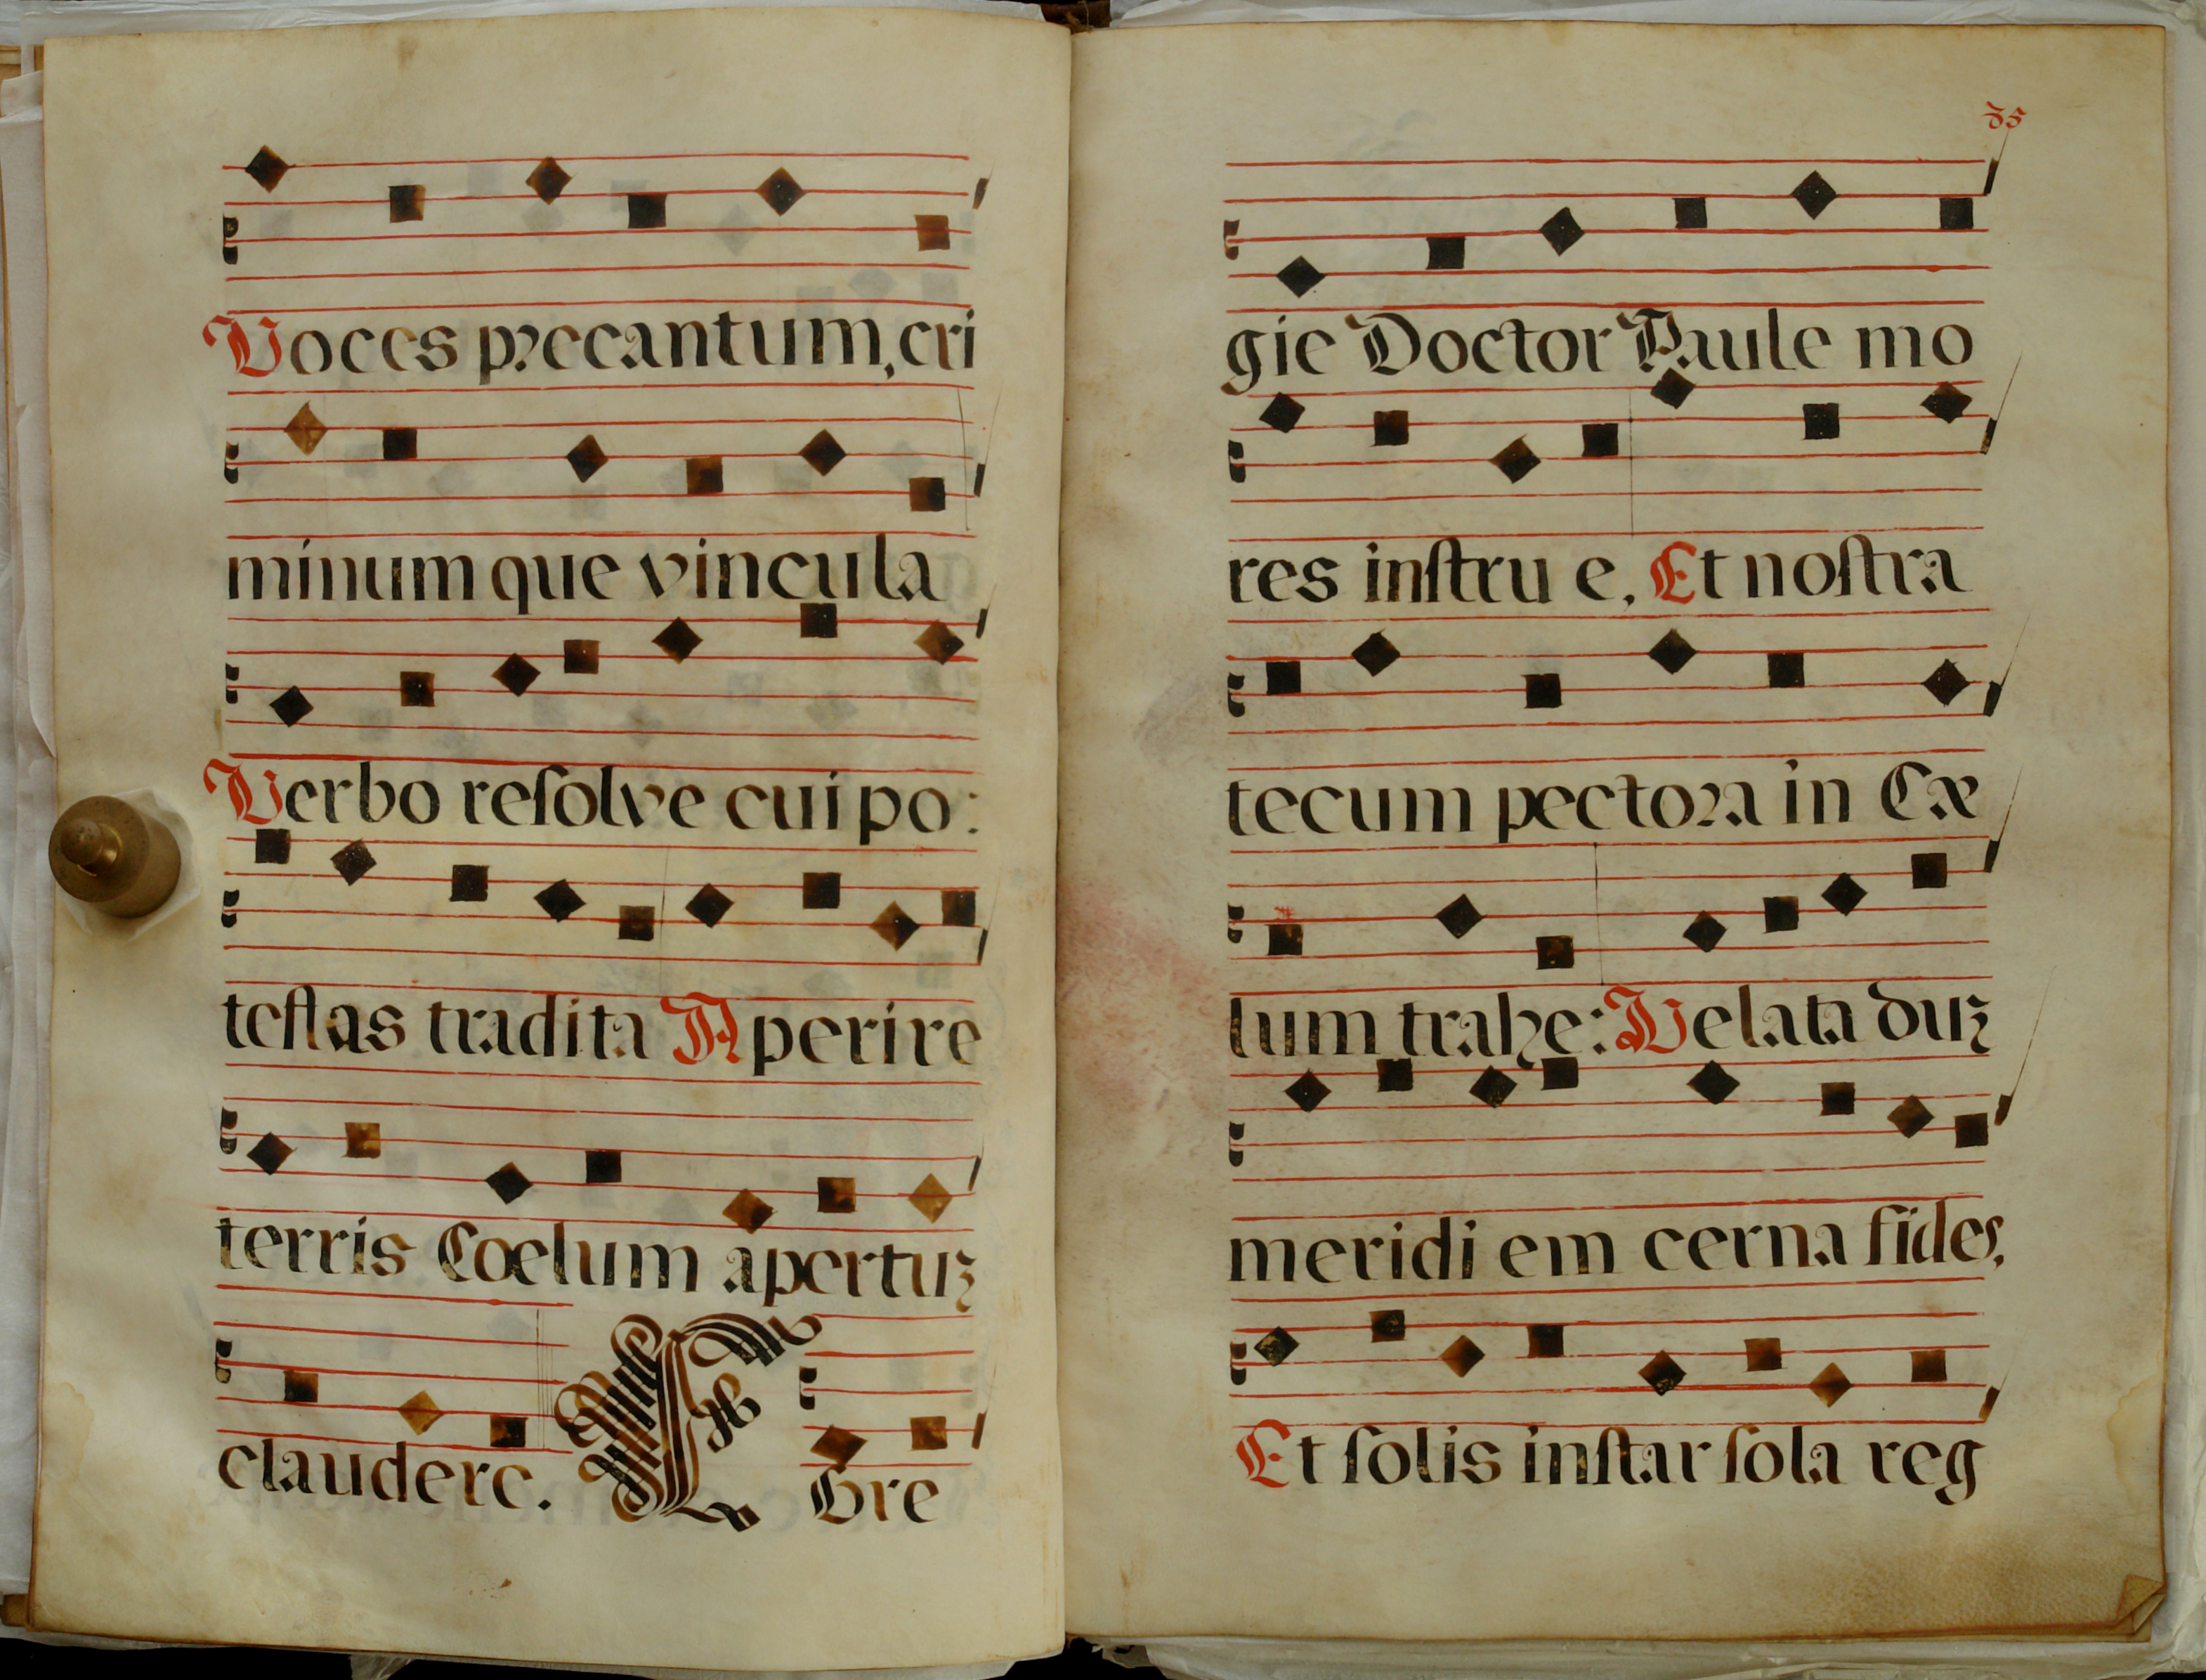 Voces precantum, cri
minum que vincula
Verbo reſolve cui po:
teſtas tradita Aperire
terris Coelum apertuz
claudere. Gre
gie Doctor Paule mo
res inſtru e, Et noſtra
tecum pectora in Cæ
lum trahe: Velata duz
meridi em cerna fides,
Et ſolis inſtar ſola reg